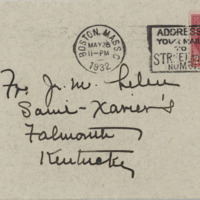 BOSTON, MASS.
MAY 28
11-PM
1932
ADDRESS
YOUR MAIL
TO
STREET
NUM
Jr. M. Helen
Saint-Xavier's
Falmouth
Kentucky